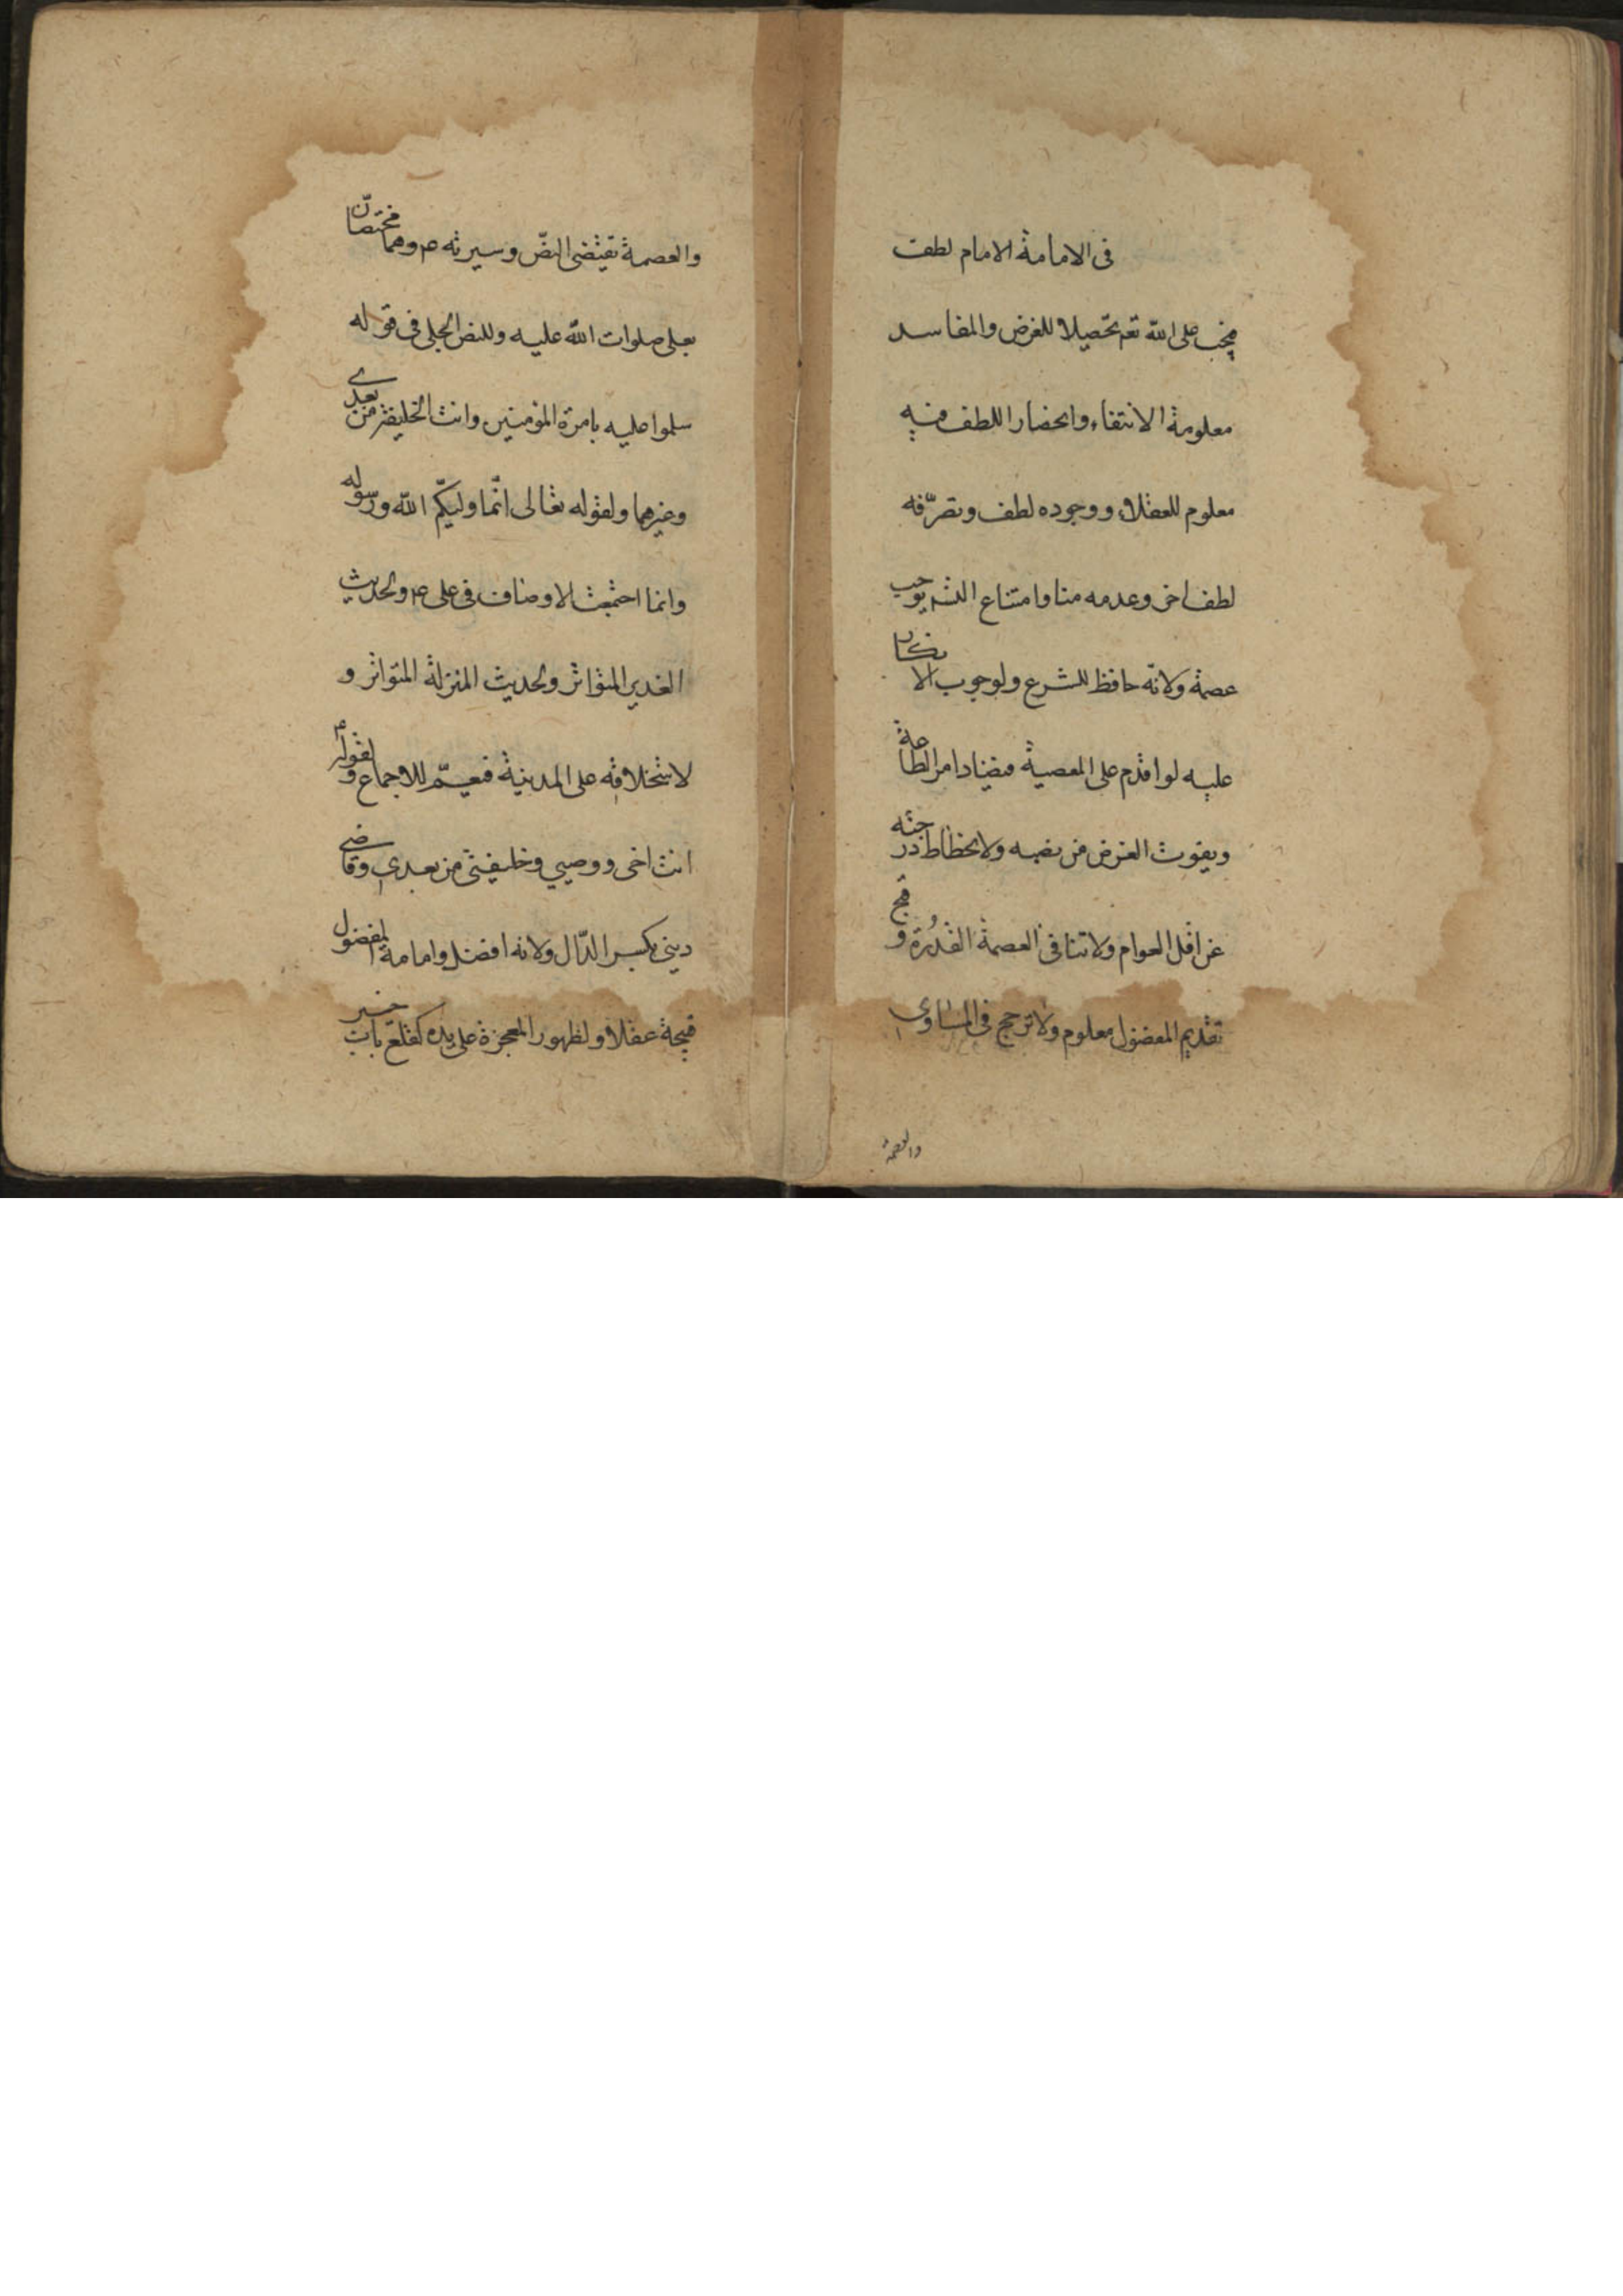 فى الامامة الامام لطف
فيجب على الله تعم تحصيلا للغرض والمفاسد
معلومة الانتفاء وانحصار اللطف فيه
معلوم للعقلاء ووجوده لطف وتصرّفه
لطف اخر وعدمه منا وامتناع التسـ يوجب
عصمة ولانّه حافظ للشرع ولوجوب الانكار
عليه لو اقدم على المعصية فيضاد امر الطاعة
ويفوت الغرض من نصبه ولانحطاط درجته
عن اقل العوام ولا تنافى العصمة القدُرة وقبح
تقديم المفضول معلوم ولا ترجيح فى المساوى
والعصمة
والعصمة تقتضى النصّ وسيرته ع وهما مختصّان
بعلى صلوات الله عليه وللنص الجلى فى قوله
سلموا عليه بامرة المؤمنين وانت الخليفة من بعدى
وغيرهما ولقوله تعالى انّما وليكّم الله ورسوله
وانما اجتمعت الاوصاف فى على ع ولحديث
الغدير المتواتر ولحديث المنزلة المتواتر و
لاستخلافه على المدينة فيعمّ للاجماع ولقوله ع
انت اخى ووصيي وخليفتى من بعدي وقاضى
دينى بكسر الدّال ولانه افضل وامامة المفضول
قبيحة عقلا ولظهور المعجزة على يده كقلع باب خيبر